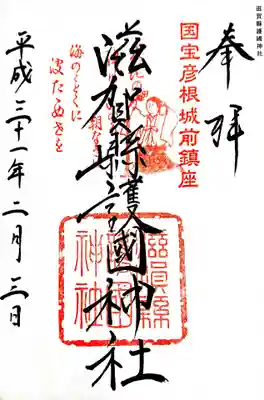 滋賀縣護國神社
奉拝
国宝彦根城前鎮座
滋賀縣護國神社
海のことくに
平成三十一年二月三日
滋賀縣
護國
神社